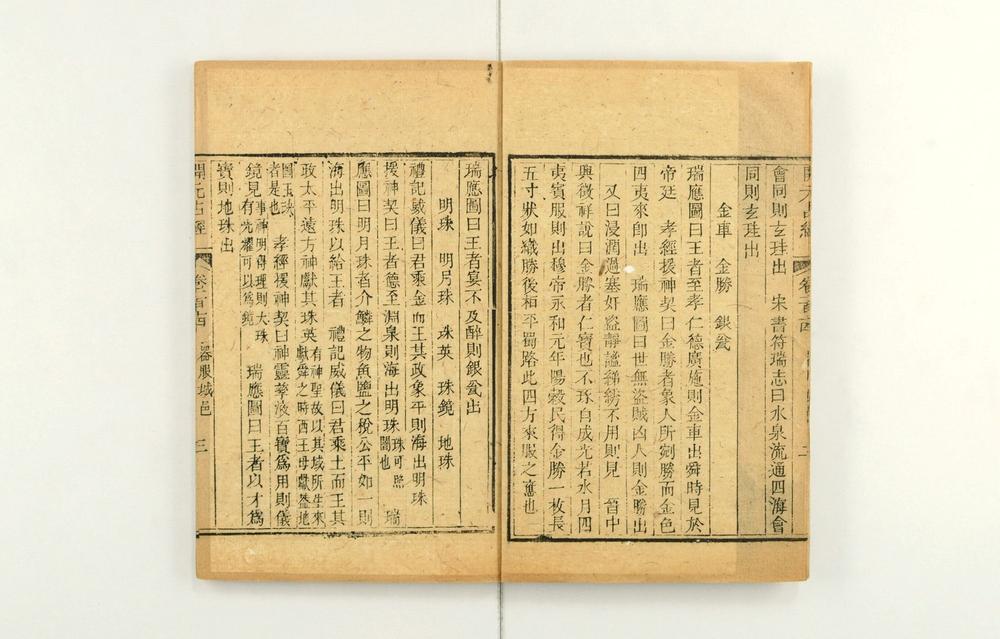 會同則玄珪出　宋書符瑞志曰水泉流通四海會
同則玄珪出
金車　金勝　銀瓮
瑞應圖曰王者至孝仁德廣施則金車出舜時見於
帝廷　孝經援神契曰金勝者象人所剜勝而金色
四夷來即出　瑞應圖曰世無盜賊凶人則金勝出
又曰浸潤過塞奸盜靜謐綈紡不用則見　晉中
興徵祥說曰金勝者仁寶也不琢自成光若水月四
夷賓服則出穆帝永和元年陽穀民得金勝一枚長
五寸狀如織勝後桓平蜀路此四方來服之應也
瑞應圖曰王者宴不及醉則銀瓮出
明珠　明月珠　珠英　珠鏡　地珠
禮記威儀曰君乘金而王其政象平則海出明珠
援神契曰王者德至淵泉則海出明珠珠可照闇也　瑞
應圖曰明月珠者介鱗之物魚鹽之稅公平如一則
海出明珠以給王者　禮記威儀曰君乘土而王其
政太平遠方神獻其珠英有神聖故以其域所生來獻舜之時西王母獻益地
圖玉玦者是也　孝經援神契曰神靈孳液百寶為用則儀
鏡見事神明得理則大珠有光耀可以為鏡　瑞應圖曰王者以才為
寶則地珠出
開元占經　卷百西　器服城邑　三